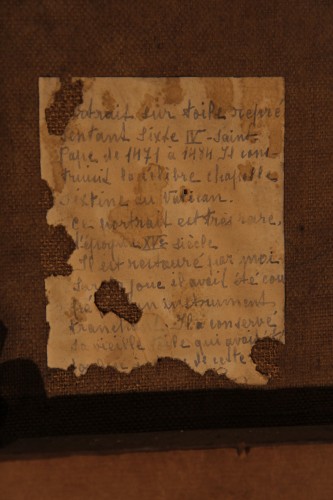 ortrait sur toile repré
sentant Sixte IV - Saint-
Pape de 1471 à 1484 Il cons
truisit la célèbre chapelle
Sixtine du Vatican.
Ce portrait est très rare,
époque XVe siècle
Il est restauré par moi
joue il avait été cou
instrument
tranch Il a conservé
sa vieille toile qui avait
de cette